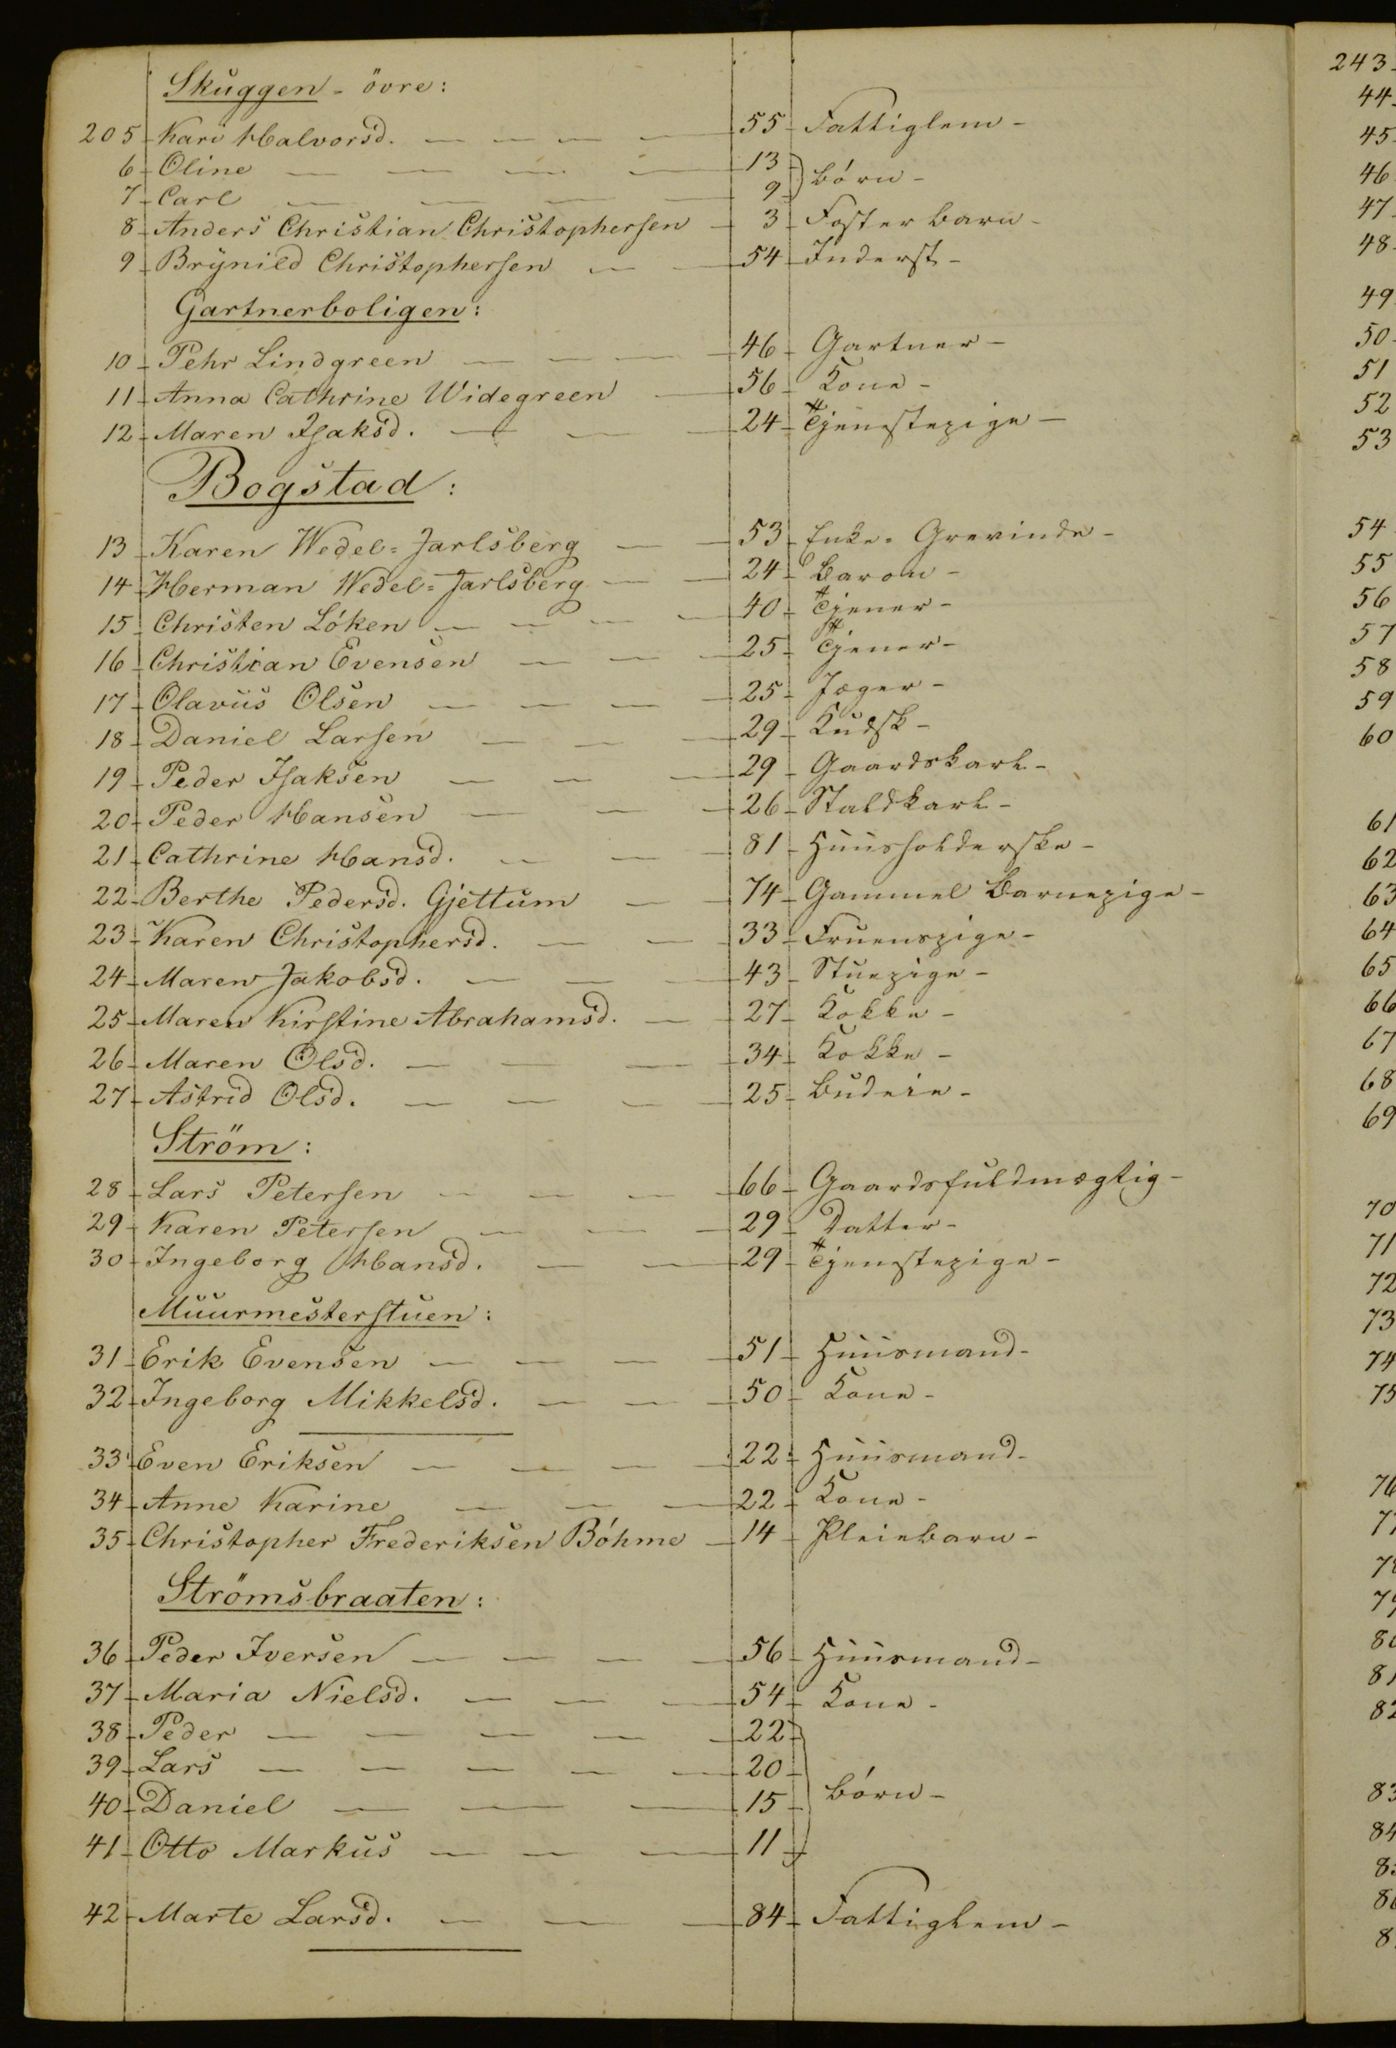 Skuggen - övre:
205 Kari Halvorsd. 55 Fattiglem
6 Oline 13
7 Carl 9 } Børn
8 Anders Christian Christophersen 3 Fosterbarn
9 Brynild Christophersen 54 Inderst
Gartnerboligen:
10 Pehr Lindgreen 46 Gartner
11 Anna Cathrine Widegreen 56 Kone
12 Maren Isaksd. 24 Tjenstepige
Bogstad:
13 Karen Wedel=Jarlsberg 53 Enke-Grevinde
14 Herman Wedel=Jarlsberg 24 Baron
15 Christen Løken 40 Tjener
16 Christian Evensen 25 Tjener
17 Olavus Olsen 25 Jæger
18 Daniel Larsen 29 Kudsk
19 Peder Isaksen 29 Gaardskarl
20 Peder Hansen 26 Staldkarl
21 Cathrine Hansd. 81 Huusholderske
22 Berthe Pedersd. Gjettum 74 Gammel Barnepige
23 Karen Christophersd. 33 Fruenspige
24 Maren Jakobsd. 43 Stuepige
25 Maren Kirstine Abrahamsd. 27 Kokke
26 Maren Olsd. 34 Kokke
27 Astrid Olsd. 25 Budeie
Ström:
28 Lars Petersen 66 Gaardsfuldmægtig
29 Karen Petersen 29 Datter
30 Ingeborg Hansd. 29 Tjenstepige
Muurmesterstuen:
31 Erik Evensen 51 Huusmand
32 Ingeborg Mikkelsd. 50 Kone
33 Even Eriksen 22 Huusmand
34 Anne Karine 22 Kone
35 Christopher Frederiksen Bøhme 14 Pleiebarn
Strömsbraaten:
36 Peder Iversen 56 Huusmand
37 Maria Nielsd. 54 Kone
38 Peder 22
39 Lars 20
40 Daniel 15 } Børn
41 Otto Markus 11
42 Marte Larsd. 84 Fattiglem
243
44
45
46
47
48
49
50
51
52
53
54
55
56
57
58
59
60
61
62
63
64
65
66
67
68
69
70
71
72
73
74
75
76
79
81
82
83
84